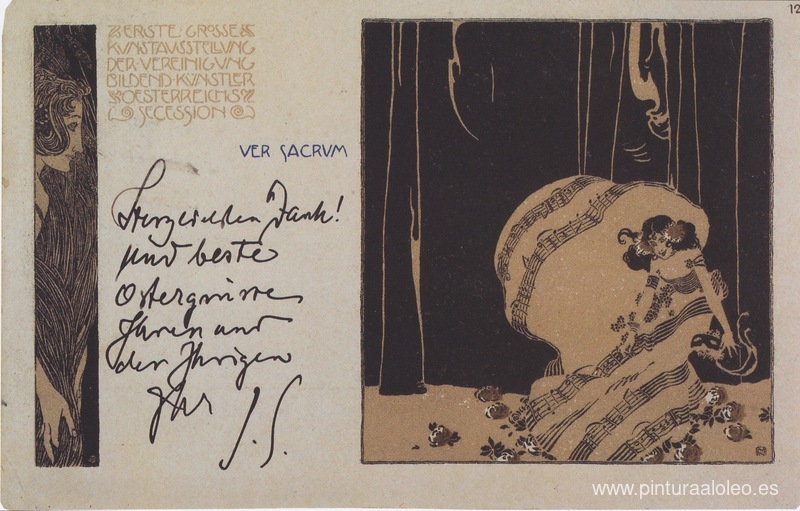 ERSTE GROSSE
KUNSTAUSSTELLUNG
DER VEREINIGUNG
BILDEND·KÜNSTLER
OESTERREICHS
SECESSION
VER SACRVM
Herzlichen Dank!
und beste
Ostergrüsse
Ihnen und
den Ihrigen
Ihr
J. S.
12
www.pinturaaloleo.es